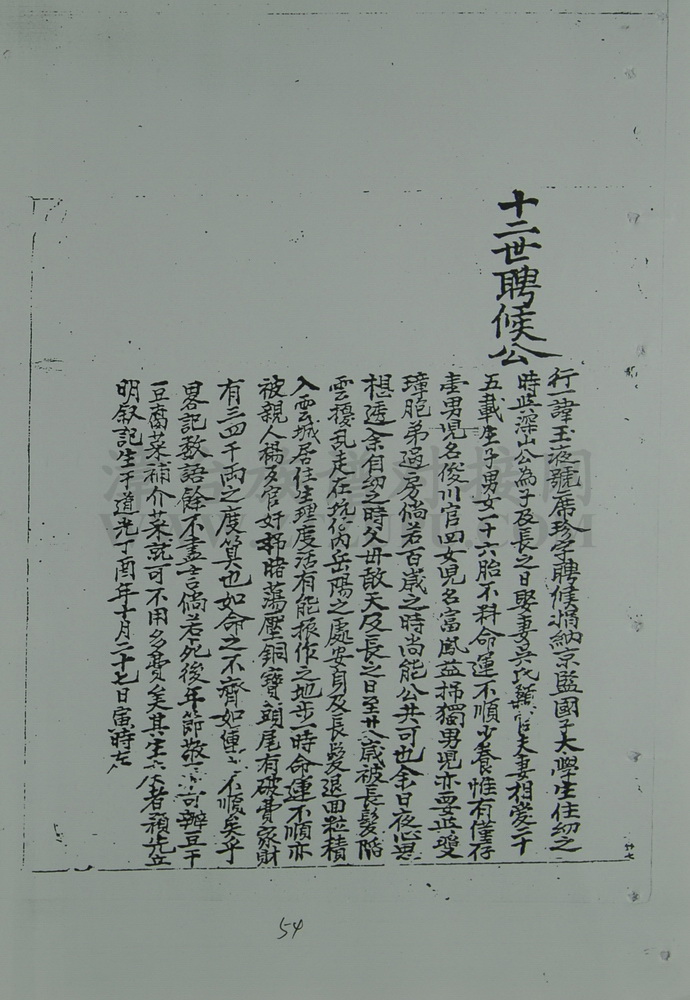 十二世聘候公
行一諱玉液號席珍字聘候捐納京監國子大學生住幼之
時與深山公為子及長之日娶妻吳氏 官夫妻相愛二十
五載生子男女一十六胎不料命運不順少養惟有僅存
壹男児名俊川官四女児名富鳳益掃獨男児亦要與變
璋胞弟過房倘若百歲之時尚能公共可也余日夜心思
想透余自幼之時父母敬天及長之日至廿八歲被長髮賊
雲擾乱走在坑 內岳陽之處安身及長髮退回粒積
入雲城居住生理度活有能振作之地步一時命運不順亦
被親人楊歹官奸掃賭蕩壓銅寶頭尾有破費家財
有三四千両之度算也如命之不齊如運 不順矣乎
畧記數語餘不盡言倘若死後年節敬 可辦豆干
豆腐菜補介菜就可不用多費矣其生 者預先立
明叙記生于道光丁酉年十月二十七日寅時左
廿七
54